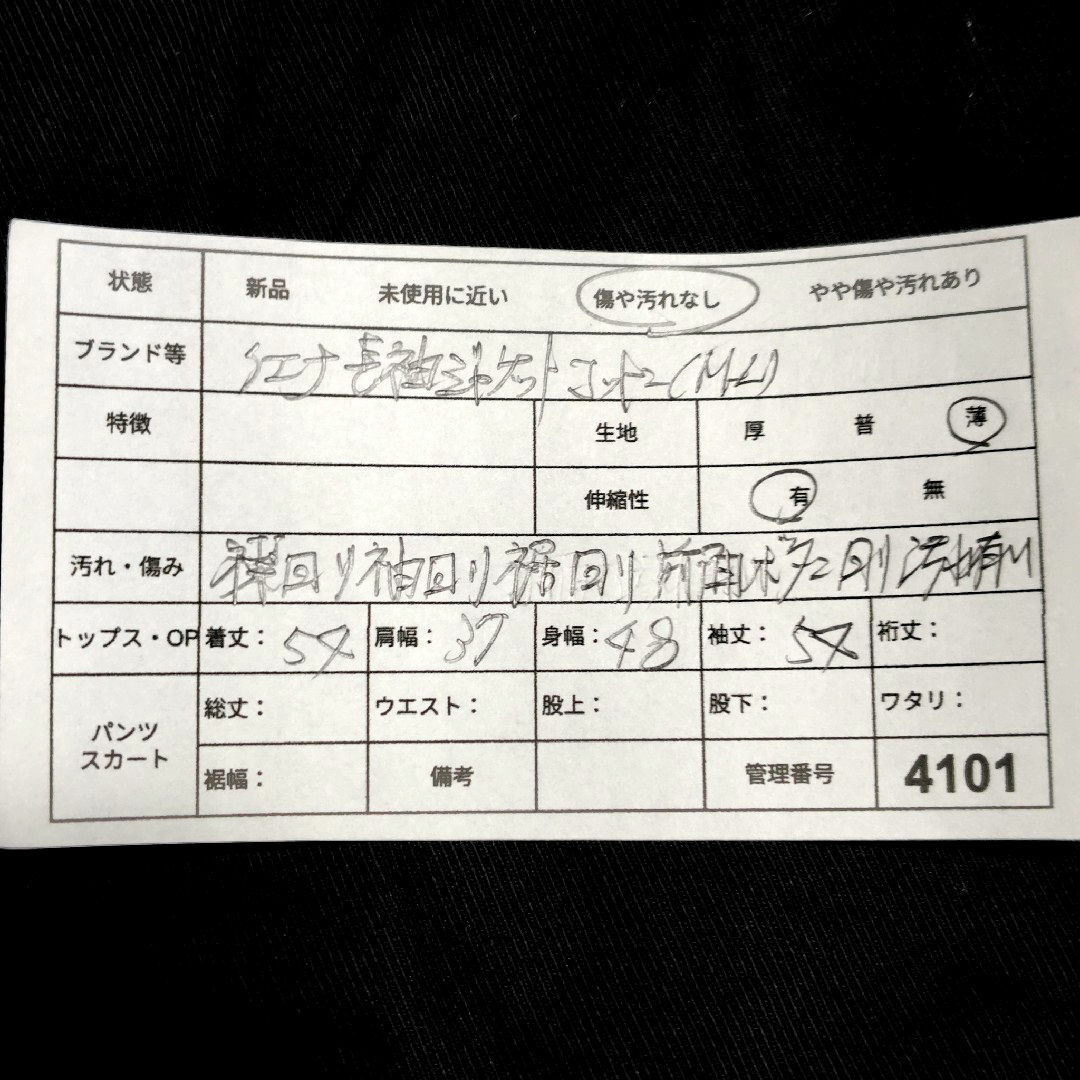 状態 新品 未使用に近い 傷や汚れなし やや傷や汚れあり
ブランド等 イエナ 長袖 (M-L)
特徴 生地 厚 普 薄
伸縮性 有 無
汚れ・傷み 襟回り袖回り裾回り前面ボタン回り汚れ有り
トップス・OP 着丈: 54 肩幅: 37 身幅: 48 袖丈: 54 裄丈:
パンツ スカート 総丈: ウエスト: 股上: 股下: ワタリ:
裾幅: 備考 管理番号 4101